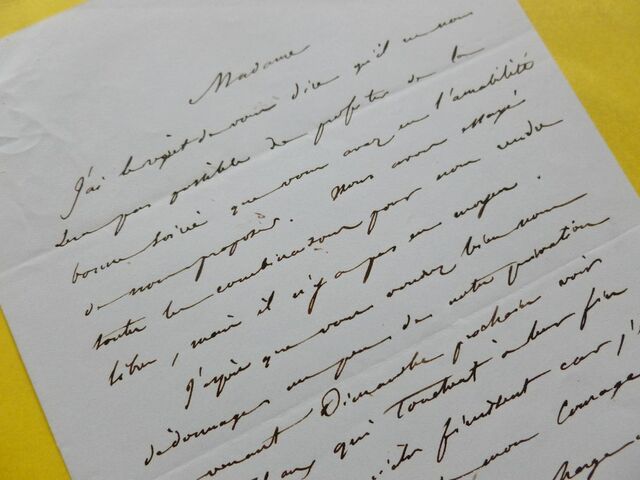 Madame
J'ai le regret de vous dire qu'il ne nous
sera pas possible de profiter de la
bonne soirée que vous avez eu l'amabilité
de nous proposer. Nous avons essayé
toutes les combinaisons pour nous rendre
libres, mais il n'y a pas eu moyen.
J'espère que vous voudrez bien nous
dédommager un peu de notre privation
venant Dimanche prochain voir
qui touchent à leur fin
car j'
mon courage